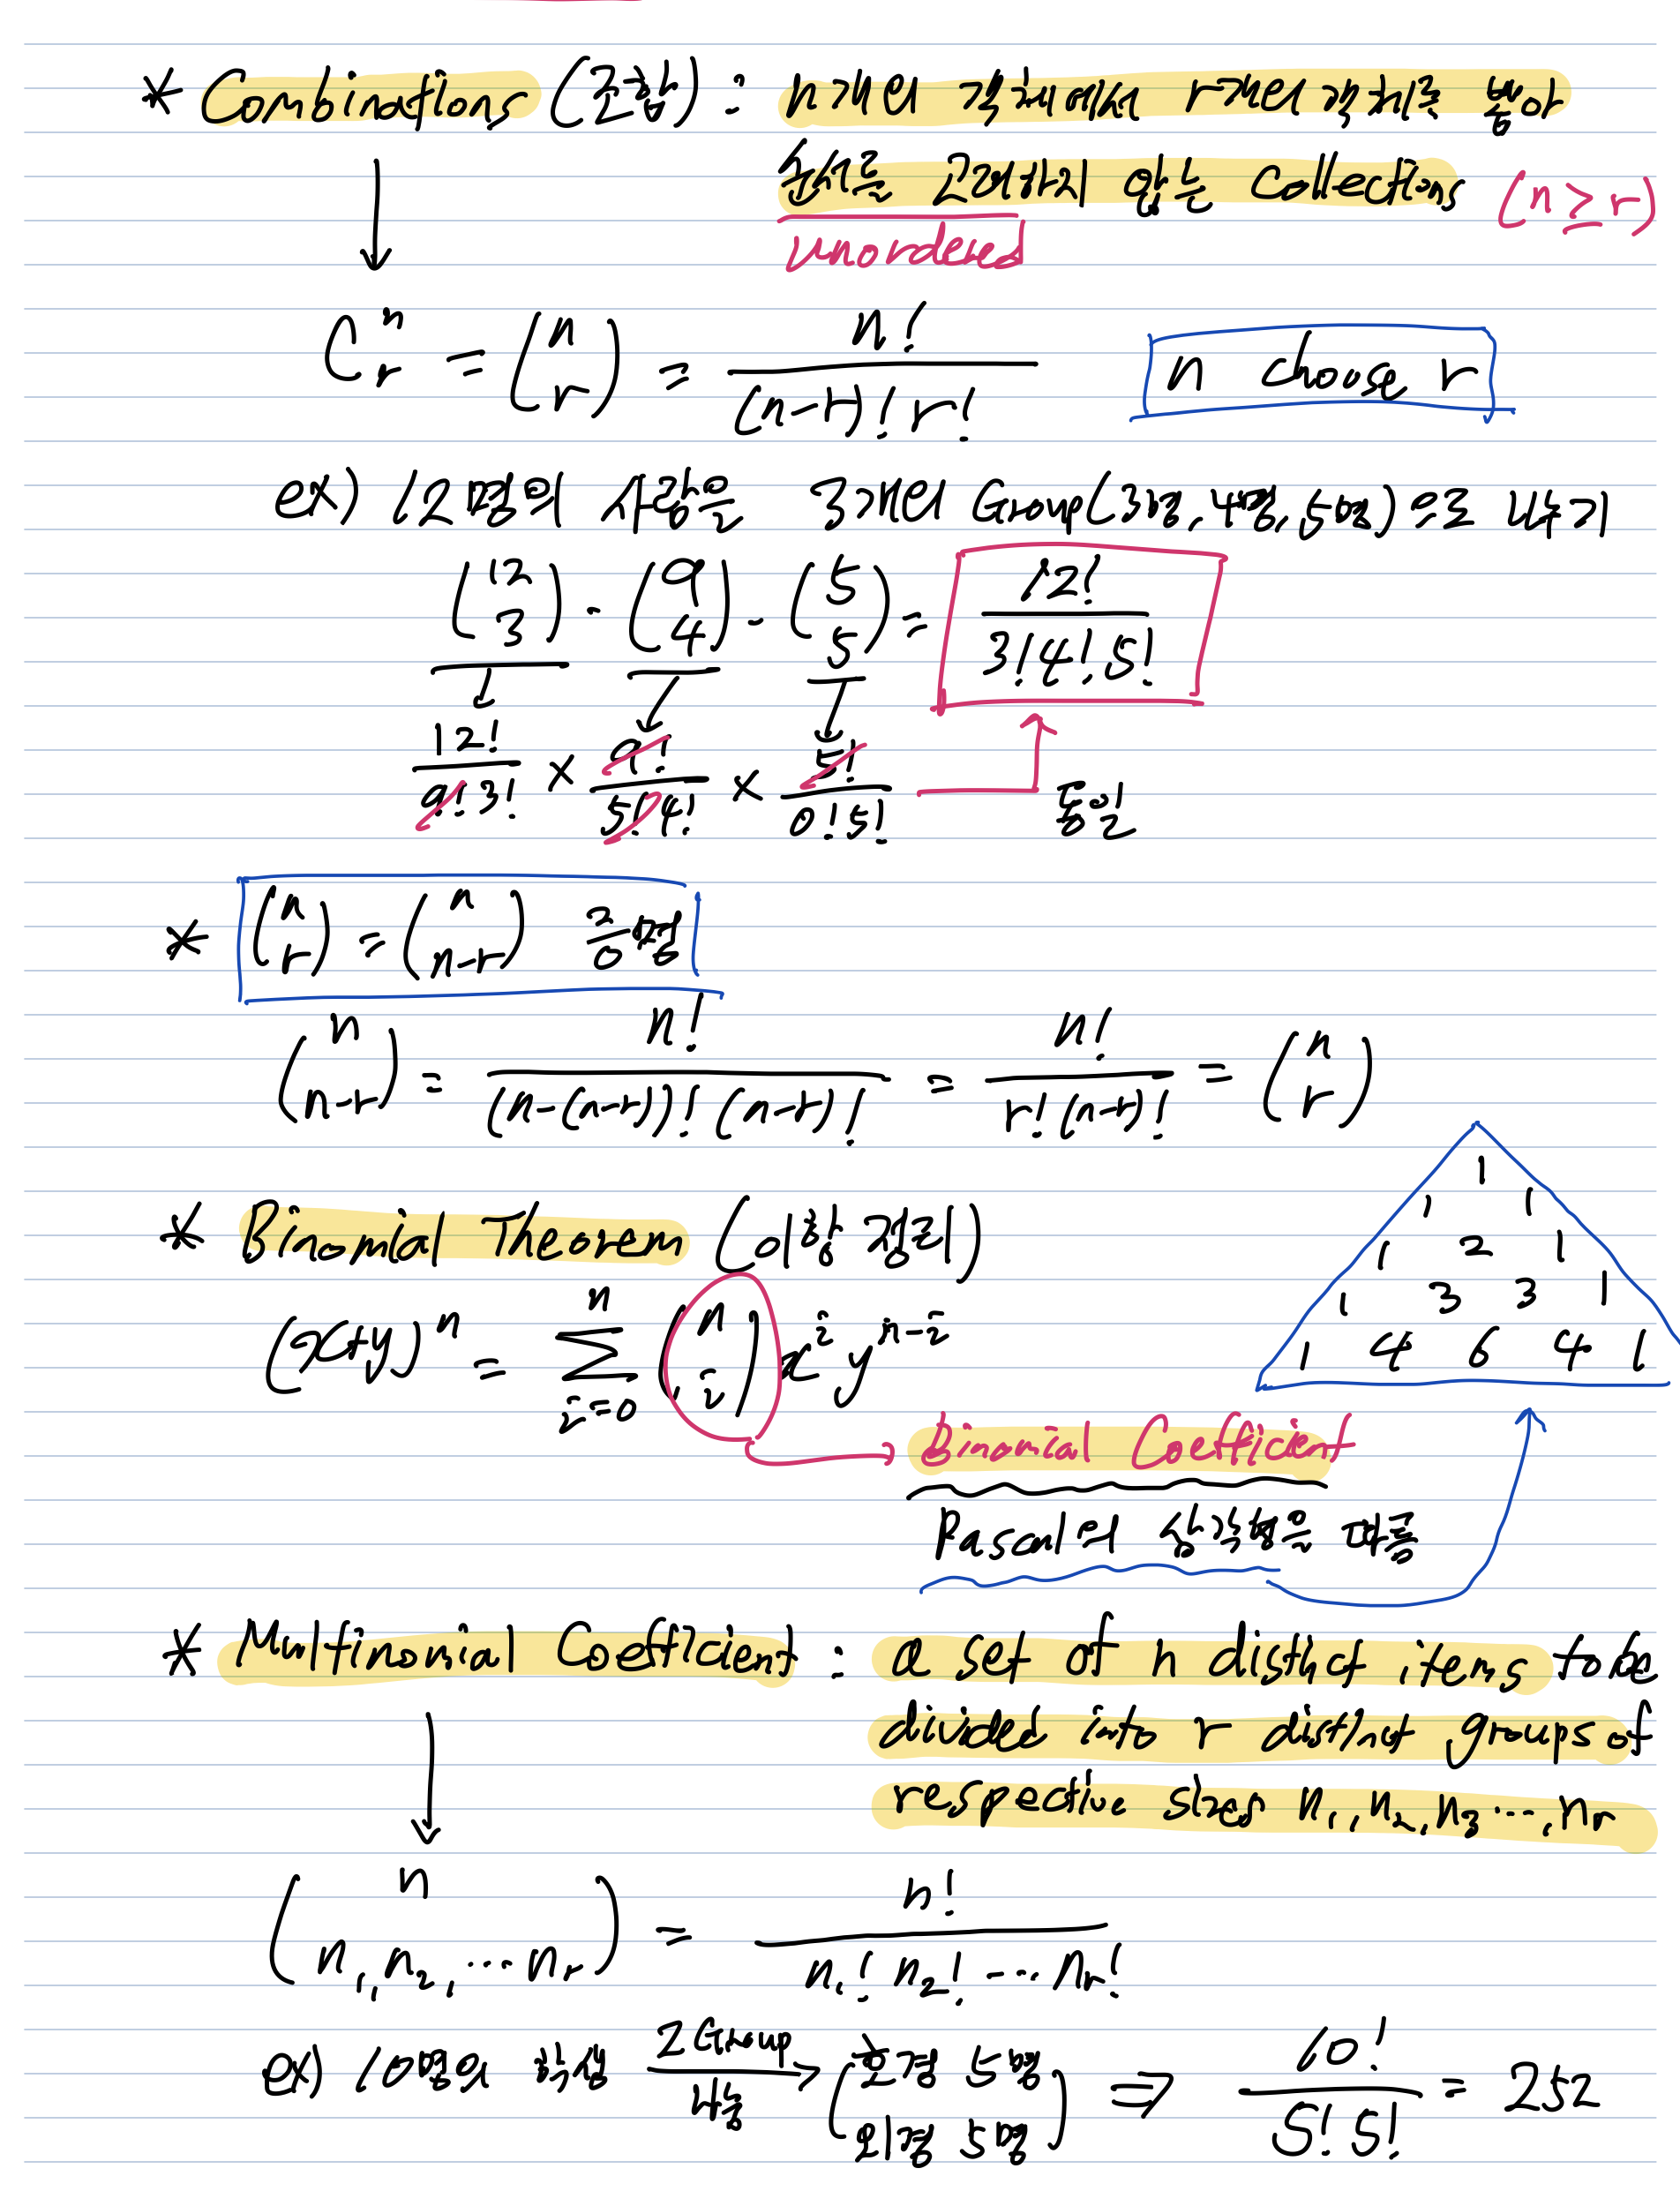 * Combinations (조합) : n개의 객체에서 r개의 객체를 뽑아
순서를 고려하지 않는 Collections (n ≥ r)
unordered
C^n_r = (n r) = n! / (n-r)! r!   n choose r
ex) 12명의 사람을 3개의 Group(3명, 4명, 5명)으로 나누기
(12 3) · (9 4) · (5 5) = 12! / 3! 4! 5!
12! / 9! 3! × 9! / 5! 4! × 5! / 0! 5!   동일
* (n r) = (n n-r) 증명
(n n-r) = n! / (n-(n-r))! (n-r)! = n! / r! (n-r)! = (n r)
* Binomial Theorem (이항 정리)
(x+y)^n = Σ_{i=0}^{n} (n i) x^i y^{n-i}
1
1 1
1 2 1
1 3 3 1
1 4 6 4 1
Binomial Coefficient
Pascal의 삼각형을 따름
* Multinomial Coefficient : a set of n distict items to be
divided into r distinct groups of
respective sizes n₁, n₂, n₃ ..., nr
(n n₁, n₂, ... nr) = n! / n₁! n₂! ... nr!
ex) 10명의 학생 2 Group 나눔 (호경 5명 외경 5명) ⇒ 10! / 5! 5! = 252